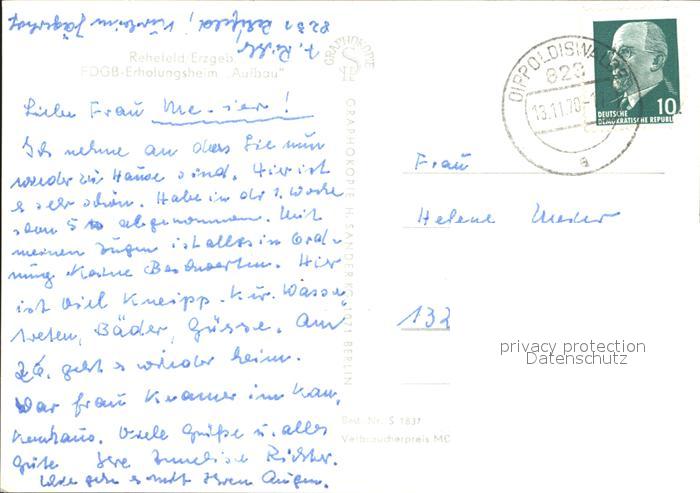 8231 Rehefeld, Kurheim Jägerhof
Rehefeld Erzgeb.
FDGB-Erholungsheim „Aufbau"
Liebe Frau
Ich nehme an dass Sie nun
wieder zu Hause sind. Hier ist
es sehr schön. Habe in der 1. Woche
schon 5 abgenommen. Mit
meinen Augen ist alles in Ord-
nung. Keine Beschwerden. Hier
ist viel Kneipp-Kur. Wasser
treten, Bäder, Güsse. Am
geht es wieder heim.
War Frau Kramer im Kran-
kenhaus. Viele Grüße u. alles
Gute Ihre Annelise Richter.
Wie geht es mit Ihren Augen.
GRAPHOKOPIE
GRAPHOKOPIE H. SANDER KG, 1071 BERLIN
DIPPOLDISWALDE
823
13.11.70
a
10
DEUTSCHE
DEMOKRATISCHE REPUBLIK
Frau
Helene
132
privacy protection
Datenschutz
Best. Nr. S 1837
Verbraucherpreis MD